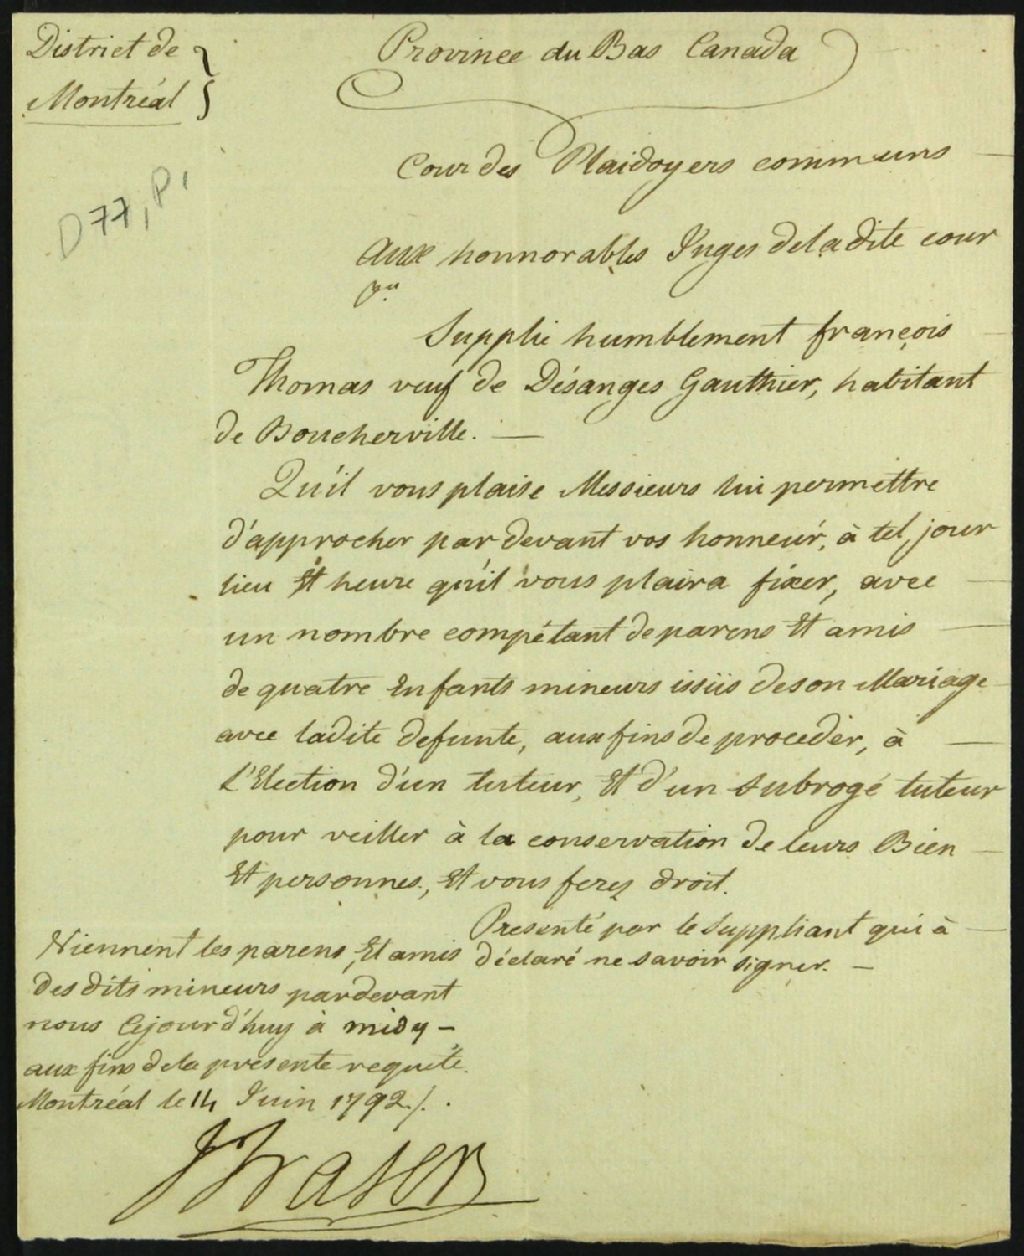 District de
Montréal
Province du Bas Canada
D77, P1
Cour des Plaidoyers communs
aux honnorables Juges deladite cour
Supplie humblement françois
Thomas veuf de Désanges Gauthier, habitant
de Boucherville. —
Qu'il vous plaise Messieurs lui permettre
d'approcher par devant vos honneur, à tel, jour
lieu Et heure qu'il vous plaira fixer, avec
un nombre compétant de parens Et amis
de quatre Enfants mineurs issüs deson Mariage
avec ladite defunte, aux fins de proceder, à
L'Election d'un tuteur, Et d'un subrogé tuteur
pour veiller à la conservation de leurs Bien
Et personnes, Et vous ferez droit.
Presenté par le Suppliant qui à
déclaré ne savoir signer. —
Viennent les parens, Et amis
des dits mineurs pardevant
nous Cejourd'huy à midy —
aux fins dela présente requête.
Montréal le 14 Juin 1792 /.
JFraser